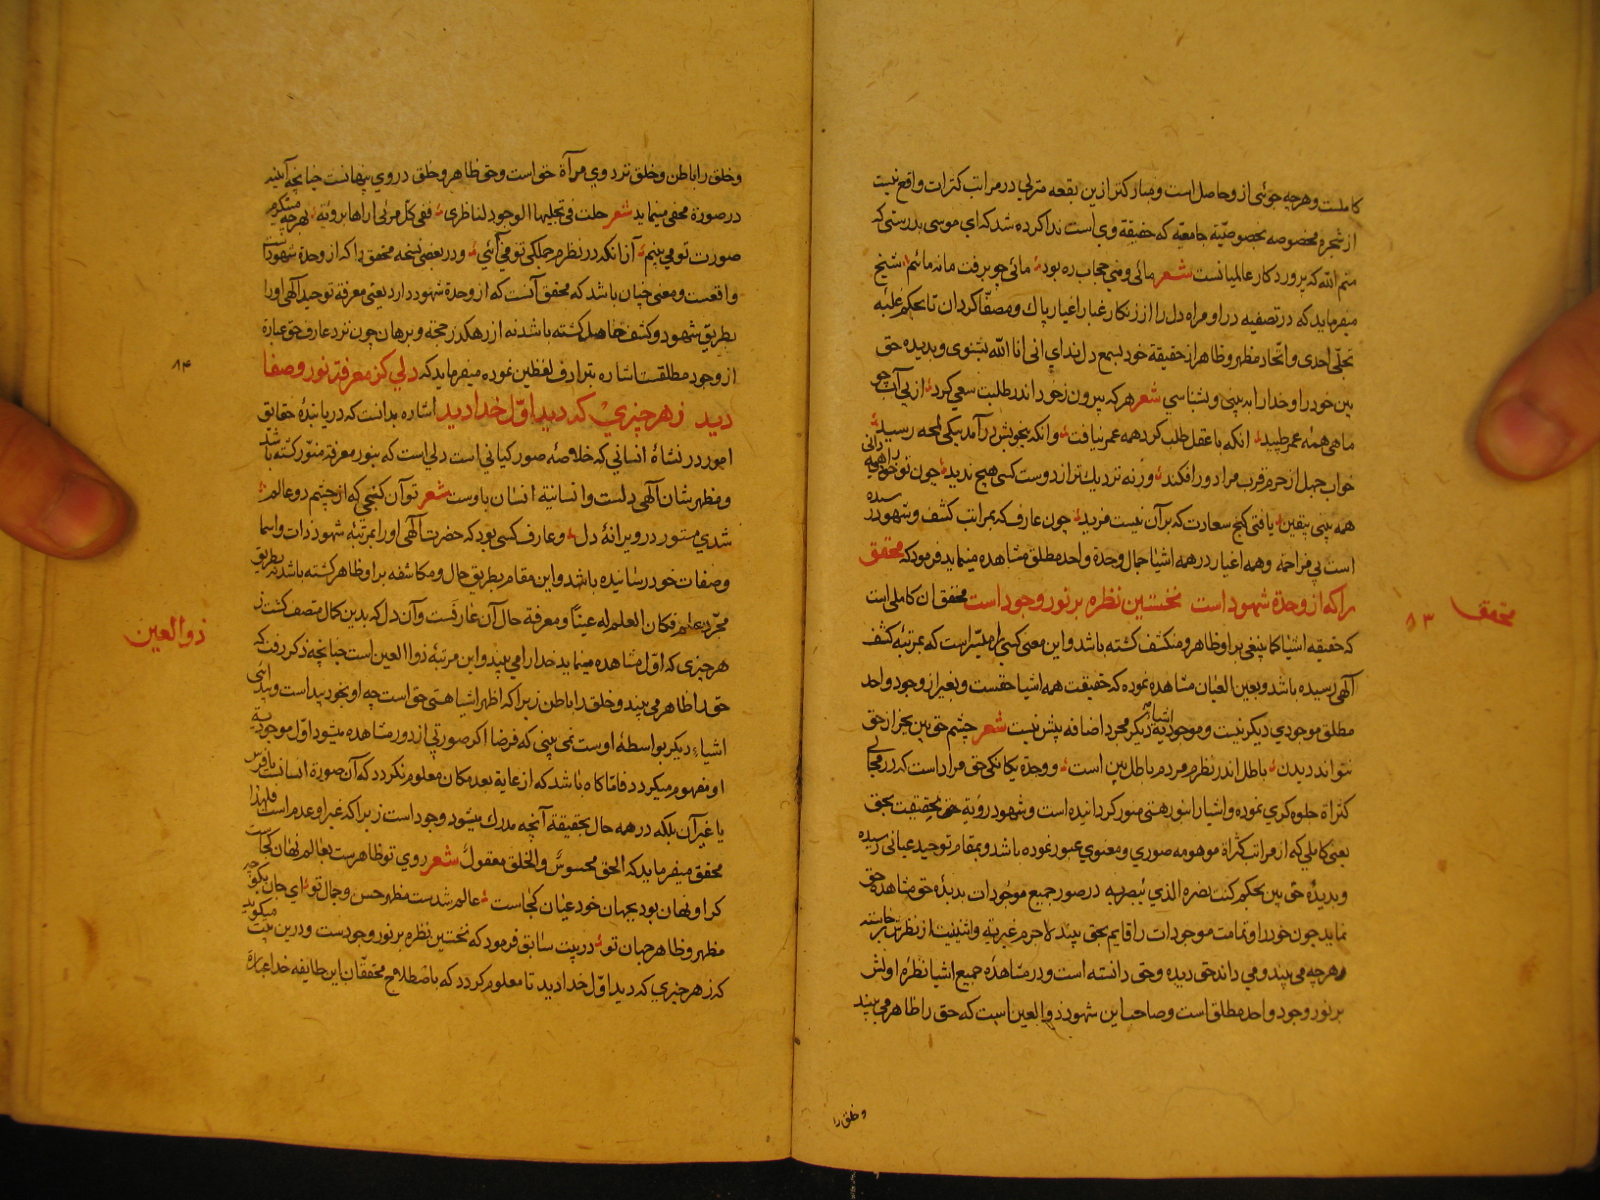 کاملست و هرچه جوئی ازو حاصل است و بسیار کثر ازین بقعه منزلی در مراتب کثرات واقع نیست
از شجره مخصوصه بخصوصیّة جامعه که حقیقة وی است ندا کرده شد که ای موسی بدرستی که
منم الله که پروردکار عالمیانست شعر مائی و منی حجاب ره بود مائی چو برفت ما نه مائیم شیخ
میفرماید که در تصفیه در او مراه دل را از زنکار غبار اغیار پاك و مصفّا کردان تا بحکم غلبه
تجلّی احدی و اتّحاد مظهر و ظاهر از حقیقة خود بسمع دل ندای انی انا الله بشنوی و بدیده حق
بین خود را و خدا را به بینی و بشناسی شعر هر که بیرون ز خود اندر طلبت سعی کرد از پی آب چو
ماهی همه عمر طپید انکه با عقل طلب کرد همه عمر نیافت وانکه بیخویش درآمد بیکی لمحه رسید
خواب جهل از حرم قرب مرا دور افکند ورنه نزدیك تر از دوست کسی هیچ ندید چون تو خود را همه دانی
همه بینی بیقین یافتی کنج سعادت که بر آن نیست فرید چون عارف که بمراتب کشف و شهود رسیده
است بی مزاحمة وهمه اغیار در همه اشیا جمال وحدة واحد مطلق مشاهده مینماید فرمود که محقق
را که از وحدة شهود است نخستین نظره بر نور وجود است محقق ان کاملی است
که حقیقه اشیا کما ینبغی بر او ظاهر و منکشف کشته باشد و این معنی کسی را میسّر است که بمرتبهٔ کشف
آلهی رسیده باشد و بعین العیان مشاهده نموده که حقیقت همه اشیا حقست و بغیر از وجود واحد
مطلق موجودی دیکر نیست و موجودیّة اشیاء دیکر مجرد اضافه بیش نیست شعر چشم حق بین بجز از حق
نتواند دیدن باطل اندر نظر مردم باطل بین است و وحدة یکانکی حق مراد است که در مجالی
کثراة جلوه کری نموده و اشیا را بنور هستی منور کردانیده است و شهود رؤیة حق بحقیقت بحق
یعنی کاملی که از مراتب کثراة موهومه صوری و معنوی عبور نموده باشد و بمقام توحید عیانی رسیده
و بدیدهٔ حق بین بحکم کنت بصره الذی یبصر به در صور جمیع موجودات بدیدهٔ حق مشاهده حق
نماید چون خود را و تمامت موجودات را قایم بحق بیند لاجرم غیریة و اثنینیت از نظرش خاسته
و هرچه می بیند و می داند حق دیده و حق دانسته است و در مشاهدهٔ جمیع اشیا نظرهٔ اولش
بر نور وجود واحد مطلق است و صاحب این شهود ذو العین است که حق را ظاهر می بیند
و خلق را
محقق
۸۳
و خلق را باطن و خلق نزد وی مرآة حق است و حق ظاهر و خلق در وی پنهانست چنانچه آینه
در صورة مخفی مینماید شعر جلت فی تجلیها الوجود لناظری ففی کل مرئی اراها برؤیة بهرچه مینکرم
صورت تو می بینم از آنکه در نظرم جملکی تو می آئی و در بعضی نسخه محقق را که از وحدة شهود است
واقعست و معنی چنان باشد که محقق آنست که از وحدة شهود دارد یعنی معرفة توحید آلهی او را
بطریق شهود و کشف حاصل کشته باشد نه از رهکذر حجّة و برهان چون نزد عارف حق عبارة
از وجود مطلقست اشاره بترادف لفظین نموده میفرماید که دلی کز معرفة نور و صفا
دید ز هر چیزی که دید اوّل خدا دید اشاره بدانست که دریابندهٔ حقایق
امور در نشاهٔ انسانی که خلاصهٔ صور کیانی است دلی است که بنور معرفة منوّر کشته باشد
و مظهر شان آلهی دلست و انسانیة انسان باوست شعر تو آن کنجی که از چشم دو عالم
شدی مستور در ویرانهٔ دل و عارف کسی بود که حضرت آلهی او را بمرتبهٔ شهود ذات و اسما
و صفات خود رسانیده باشد و این مقام بطریق حال و مکاشفه بر او ظاهر کشته باشد نه بطریق
مجرّد علم فکان العلم له عینًا و معرفة حال آن عارفست و آن دل که بدین کمال متصف کشت ز
هر چیزی که اوّل مشاهده مینماید خدا را می بیند و این مرتبه ذوا العین است چنانچه ذکر رفت که
حق را ظاهر می بیند و خلق را باطن زیرا که اظهر اشیا هستی حق است چه او بخود پیداست و پیدائی
اشیاء دیکر بواسطهٔ اوست نمی بینی که فرضا اکر صورتی از دور مشاهده میشود اوّل موجودیة
او مفهوم میکردد فامّا کاه باشد که از غایة بعد مکان معلوم نکردد که آن صورة انسانست یا فرس
یا غیر آن بلکه در همه حال بحقیقة آنچه مدرك میشود وجود است زیرا که غیر او عدم است فلهذا
محقق میفرماید که الحق محسوسٌ والخلق معقولٌ شعر روی تو ظاهرست بعالم نهان کجاست
کر او نهان بود بجهان خود عیان کجاست عالم شدست مظهر حسن و جمال تو ای جان بکو چیز
مظهر و ظاهر جهان تو در بیت سابق فرمود که نخستین نظره بر نور وجودست و درین بیت میکوید
که ز هر چیزی که دید اوّل خدا دید تا معلوم کردد که باصطلاح محققان این طایفه خدا عبارة
ذوالعین
۸۴